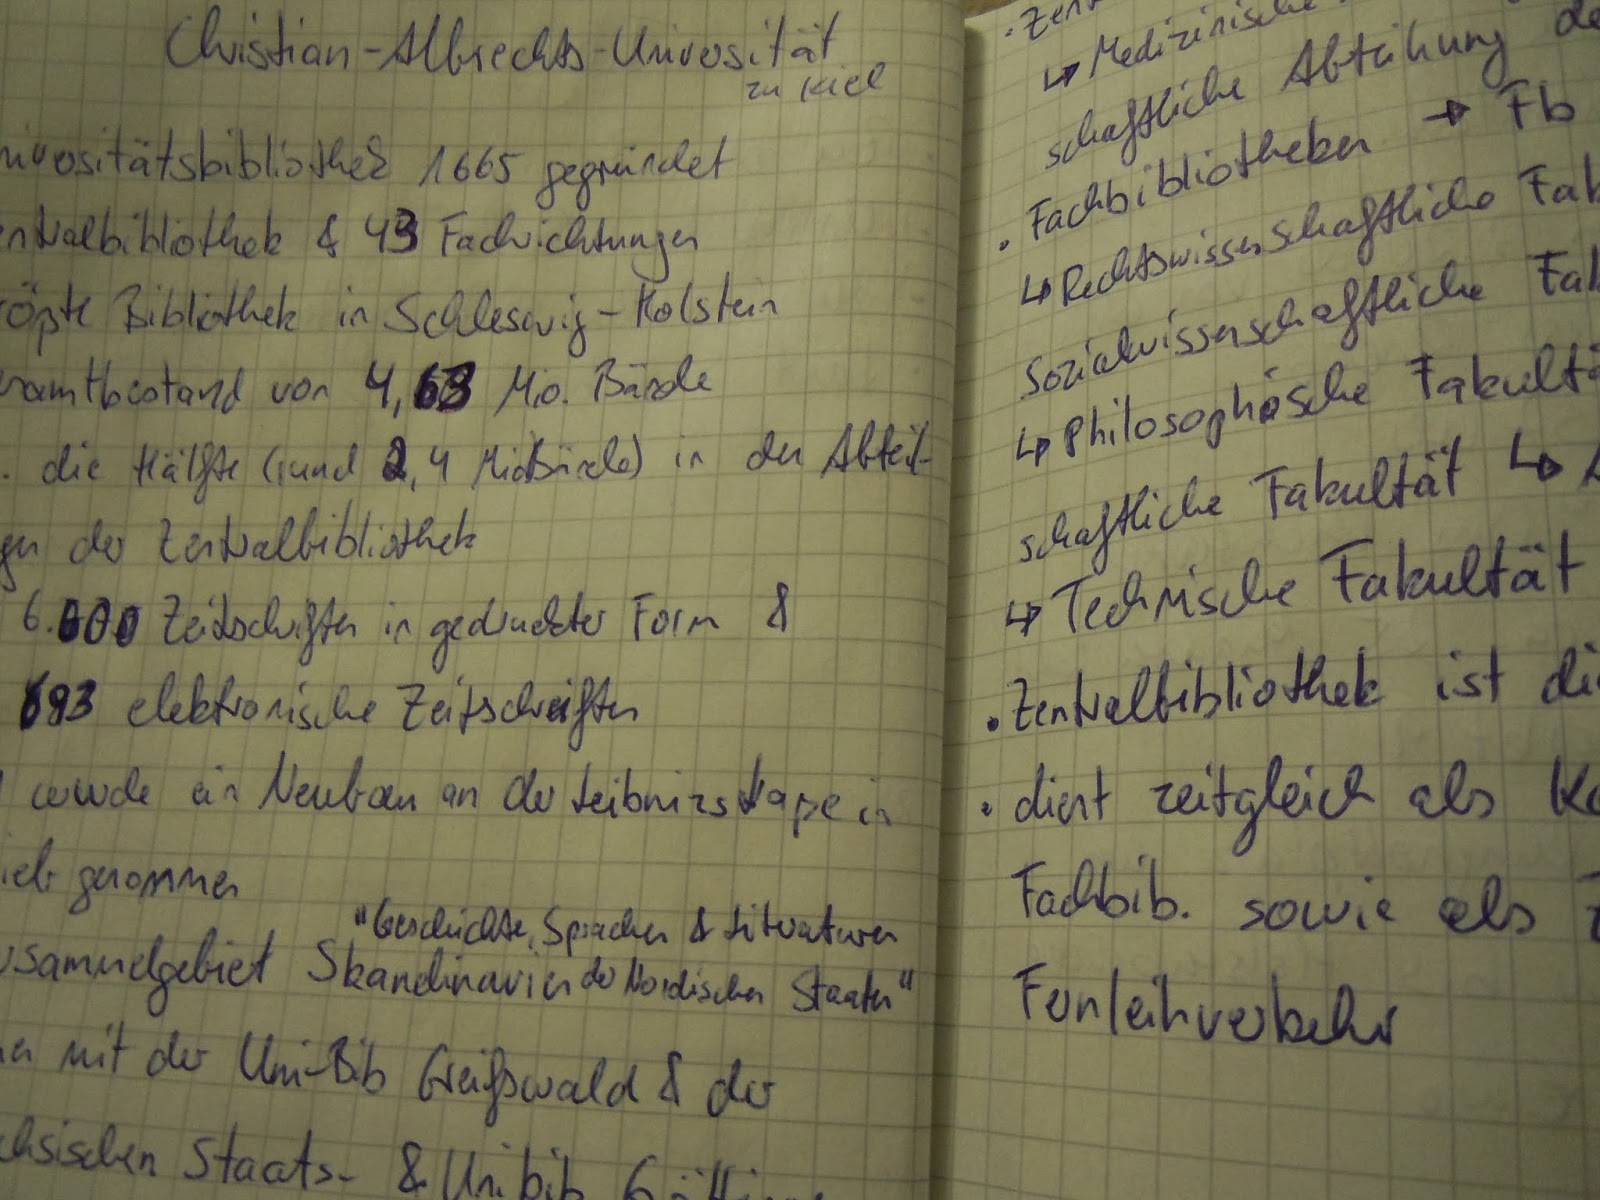 Christian-Albrechts-Universität
zu Kiel
niversitätsbibliothek 1665 gegründet
entralbibliothek & 49 Fachrichtungen
rößte Bibliothek in Schleswig-Holstein
esamtbestand von 4,68 Mio. Bände
. die Hälfte (rund 2,4 Mio Bände) in den Abteil-
gen der Zentralbibliothek
6.000 Zeitschriften in gedruckter Form &
693 elektronische Zeitschriften
wurde ein Neubau an der Leibnizstraße in
rieb genommen
"Geschichte, Sprachen & Literaturen
rsammelgebiet Skandinavien der Nordischen Staaten"
mit der Uni-Bib Greifswald & der
chsischen Staats- & Unibib Götting
· Zent
↳ Medizinische
schaftliche Abteilung de
· Fachbibliotheken → Fb
↳ Rechtswissenschaftliche Fak
Sozialwissenschaftliche Fak
↳ Philosophische Fakultä
schaftliche Fakultät ↳
↳ Technische Fakultät
· Zentralbibliothek ist di
· dient zeitgleich als
Fachbib. sowie als
Fernleihverkehr